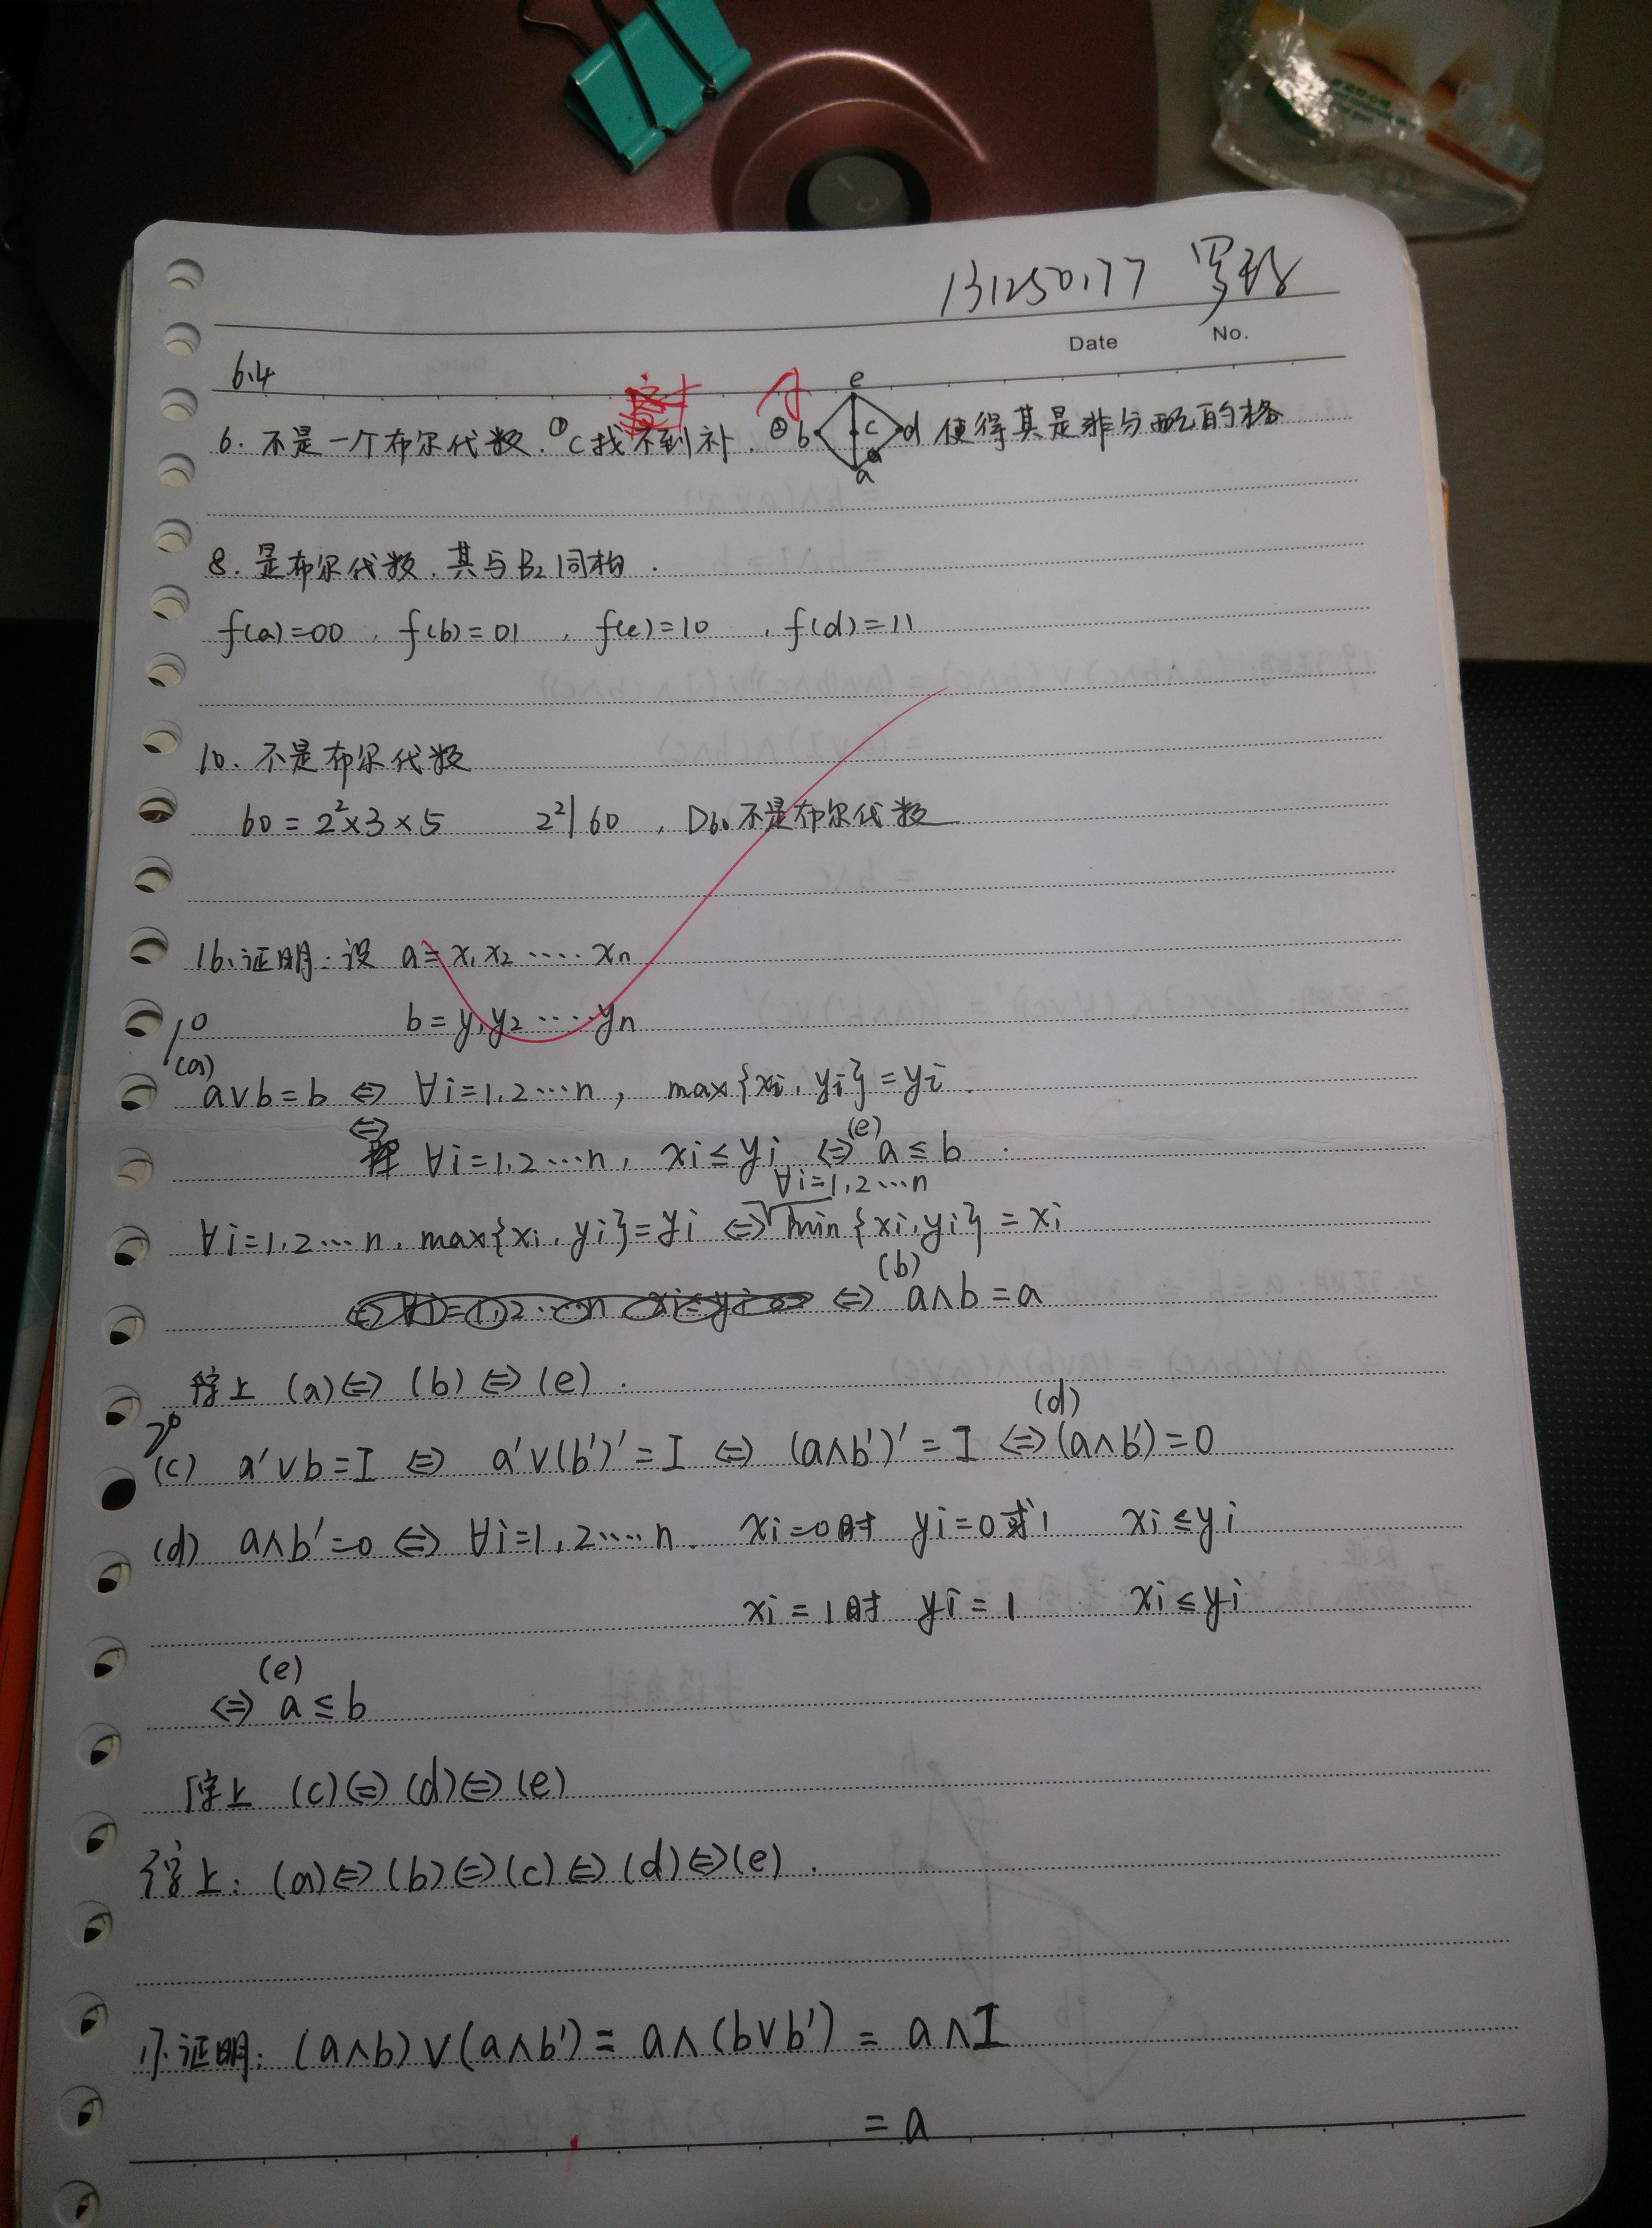 131250177
Date No.
6.4
6. 不是一个布尔代数. ①c找不到补. ② b e c d a 使得其是非与配的格
8. 是布尔代数. 其与B₂同构.
f(a)=00, f(b)=01, f(e)=10, f(d)=11
10. 不是布尔代数
60=2²×3×5 2²|60, D₆₀不是布尔代数
16. 证明: 设 a=x₁x₂……xₙ
b=y₁y₂……yₙ
1⁰
(a) a∨b=b ⇔ ∀i=1,2…n, max{xi,yi}=yi.
⇔ ∀i=1,2…n, xi≤yi ⇔ (e) a≤b.
∀i=1,2…n, max{xi,yi}=yi ⇔ ∀i=1,2…n min{xi,yi}=xi
⇔ (b) a∧b=a
综上 (a)⇔(b)⇔(e).
2⁰
(c) a′∨b=I ⇔ a′∨(b′)′=I ⇔ (a∧b′)′=I ⇔ (d) (a∧b′)=0
(d) a∧b′=0 ⇔ ∀i=1,2…n. xi=0时 yi=0或1 xi≤yi
xi=1时 yi=1 xi≤yi
⇔ (e) a≤b
综上 (c)⇔(d)⇔(e)
综上: (a)⇔(b)⇔(c)⇔(d)⇔(e).
17. 证明: (a∧b)∨(a∧b′)=a∧(b∨b′)=a∧I
=a